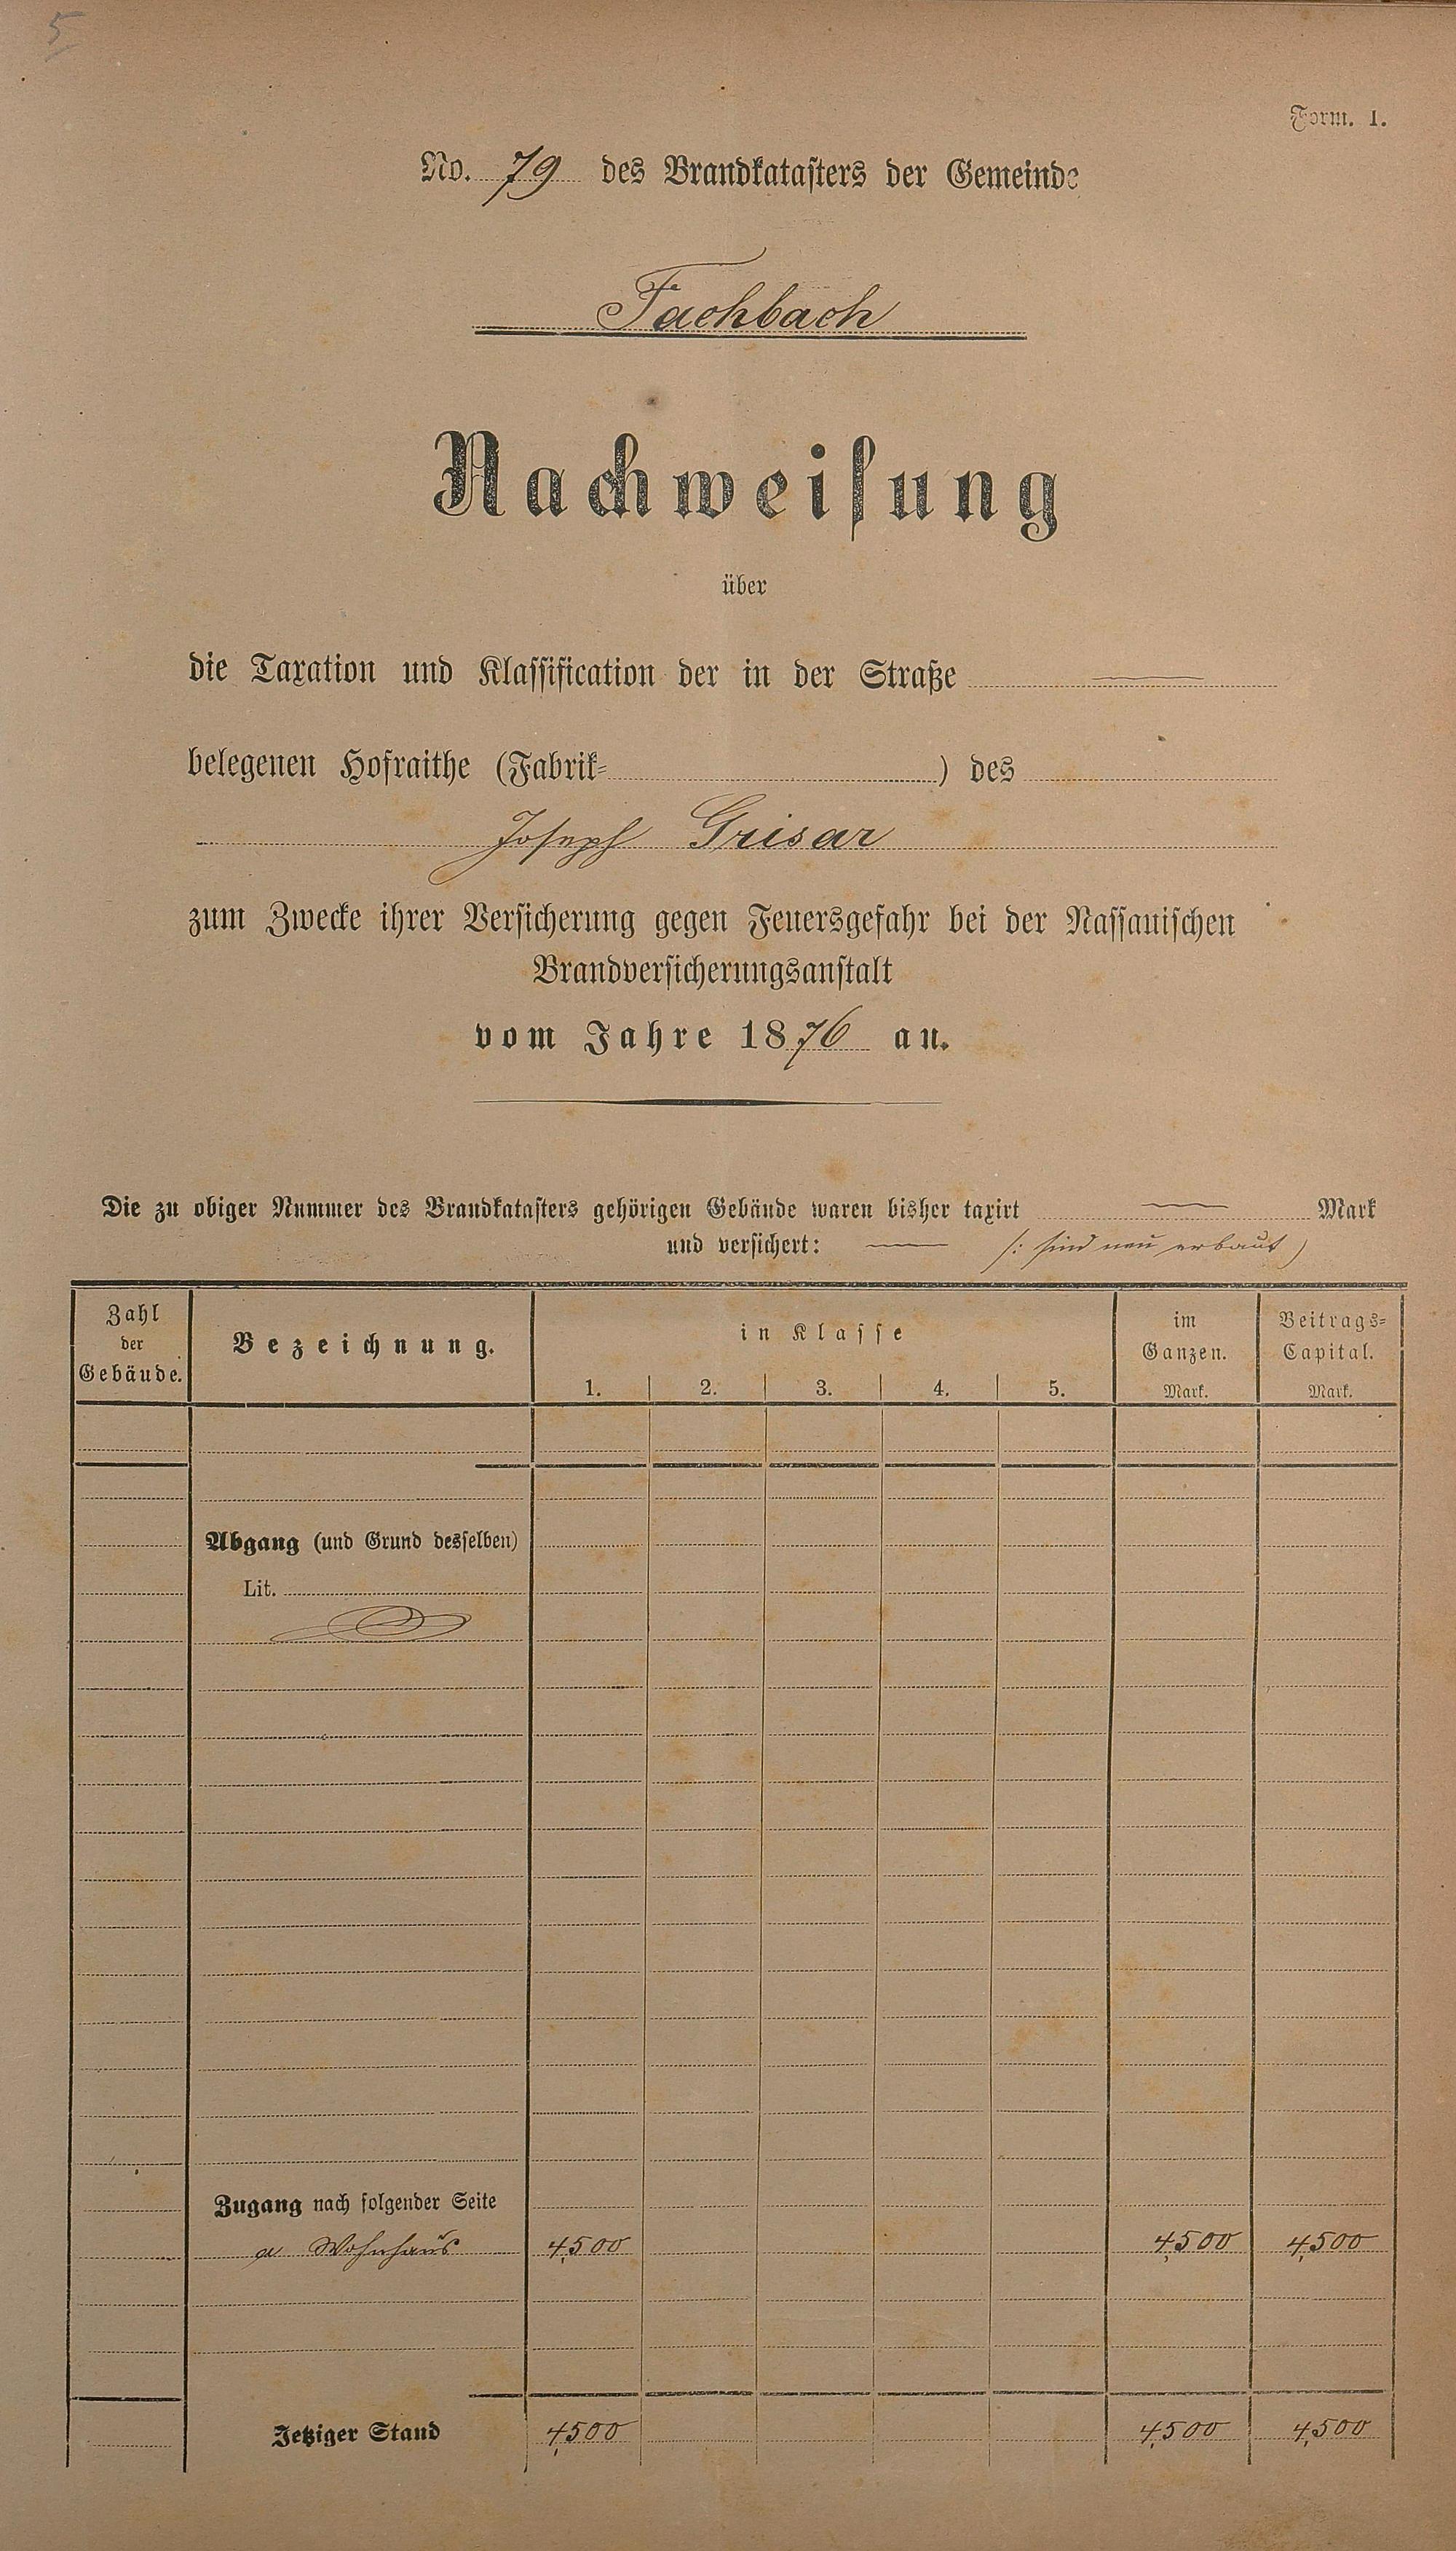 5
Form. 1.
No. 79 des Brandkatasters der Gemeinde
Fachbach
Nachweisung
über
die Taxation und Klassification der in der Straße
belegenen Hofraithe (Fabrik- ) des
Joseph Grisar
zum Zwecke ihrer Versicherung gegen Feuersgefahr bei der Nassauischen
Brandversicherungsanstalt
vom Jahre 1876 an.
Die zu obiger Nummer des Brandkatasters gehörigen Gebäude waren bisher taxirt — Mark
und versichert: — /: sind neu erbaut )
Zahl der Gebäude. Bezeichnung. in Klasse im Ganzen. Beitrags-Capital.
1. 2. 3. 4. 5. Mark. Mark.
Abgang (und Grund desselben)
Lit.
Zugang nach folgender Seite
a Wohnhaus 4,500 4,500 4,500
Jetziger Stand 4,500 4,500 4,500